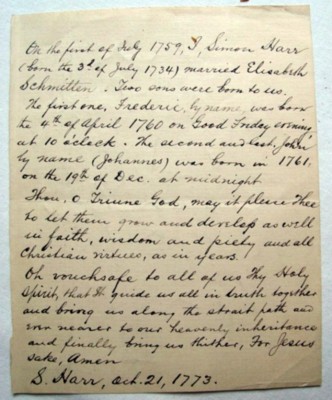 On the first of July 1759, I, Simon Harr
(born the 3d of July 1734) married Elisabeth
Schmitten. Two sons were born to us.
The first one, Frederic, by name, was born
the 4th of April 1760 on Good Friday evening,
at 10 o'clock. The second and last, John
by name (Johannes) was born in 1761,
on the 19th of Dec. at midnight
Thou, O Triune God, may it please Thee
to let them grow and develop as well
in faith, wisdom and piety and all
Christian virtues, as in years.
Oh vouchsafe to all of us Thy Holy
Spirit, that It guide us all in truth together
and bring us along the strait path and
ever nearer to our heavenly inheritance
and finally bring us thither, For Jesus
sake, Amen
S. Harr, Oct. 21, 1773.